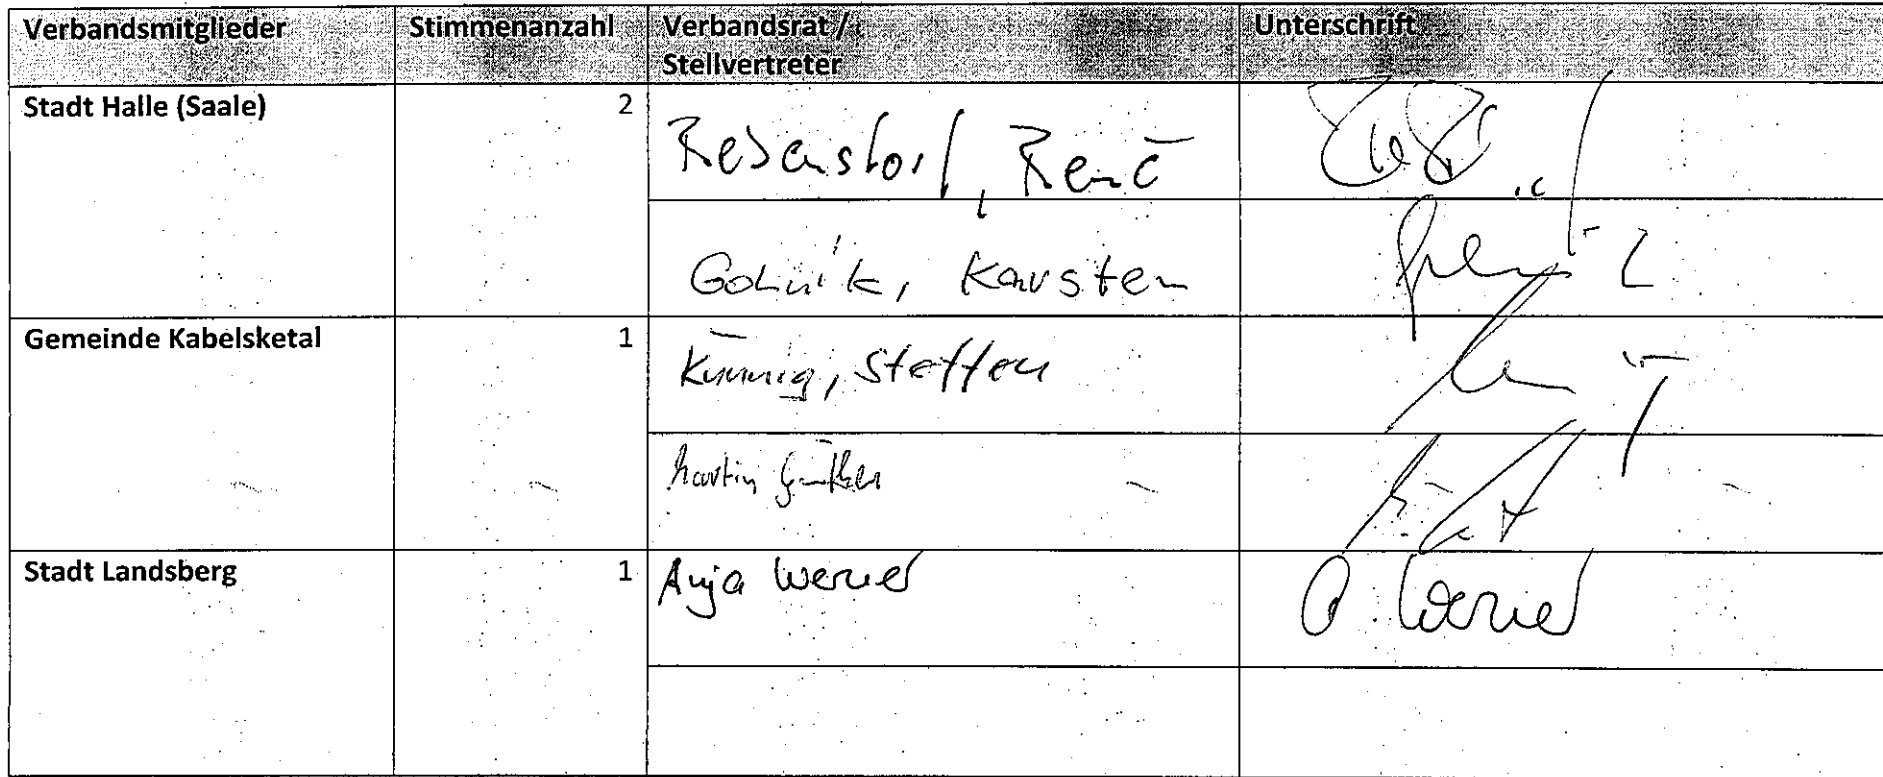 Verbandsmitglieder Stimmenanzahl Verbandsrat / Unterschrift
Stellvertreter
Stadt Halle (Saale) 2 Rebenstorf, René
Golnik, Karsten
Gemeinde Kabelsketal 1 Kunnig, Steffen
Martin Günther
Stadt Landsberg 1 Anja Werner A. Werner